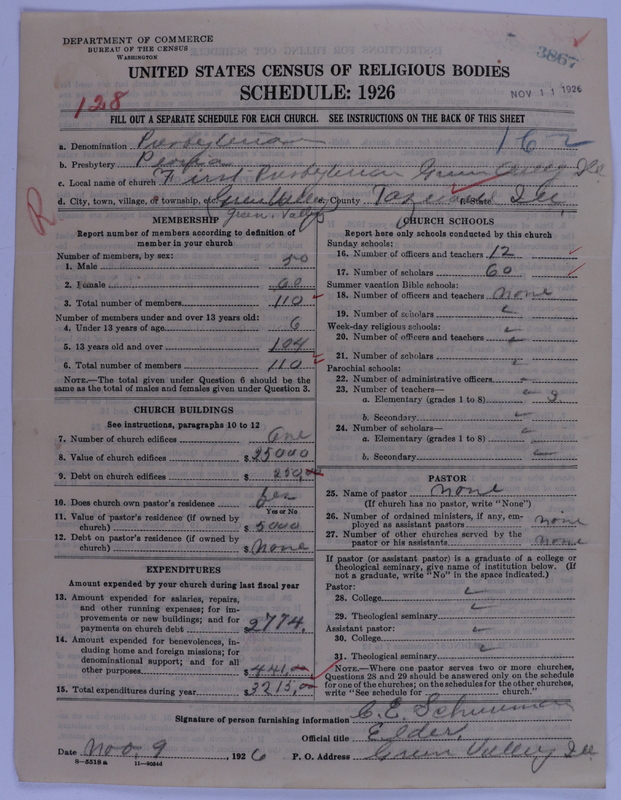 DEPARTMENT OF COMMERCE
BUREAU OF THE CENSUS
WASHINGTON
3867
UNITED STATES CENSUS OF RELIGIOUS BODIES
SCHEDULE: 1926
NOV 11 1926
128
FILL OUT A SEPARATE SCHEDULE FOR EACH CHURCH. SEE INSTRUCTIONS ON THE BACK OF THIS SHEET
162
a. Denomination Presbyterian
b. Presbytery Peoria
c. Local name of church First Presbyterian Green Valley Ill
d. City, town, village, or township, etc. Green Valley e. County Tazewell State Ill,
Green Valley
R
MEMBERSHIP
Report number of members according to definition of
member in your church
Number of members, by sex:
1. Male 50
2. Female 60
3. Total number of members 110
Number of members under and over 13 years old:
4. Under 13 years of age 6
5. 13 years old and over 104
6. Total number of members 110
NOTE.—The total given under Question 6 should be the
same as the total of males and females given under Question 3.
CHURCH BUILDINGS
See instructions, paragraphs 10 to 12
7. Number of church edifices One
8. Value of church edifices $ 25000
9. Debt on church edifices $
10. Does church own pastor's residence Yes
Yes or No
11. Value of pastor's residence (if owned by
church) $ 5000
12. Debt on pastor's residence (if owned by
church) $ None
EXPENDITURES
Amount expended by your church during last fiscal year
13. Amount expended for salaries, repairs,
and other running expenses; for im-
provements or new buildings; and for
payments on church debt 2774.
14. Amount expended for benevolences, in-
cluding home and foreign missions; for
denominational support; and for all
other purposes $ 441.00
15. Total expenditures during year $ 3215.00
CHURCH SCHOOLS
Report here only schools conducted by this church
Sunday schools:
16. Number of officers and teachers 12
17. Number of scholars 60
Summer vacation Bible schools:
18. Number of officers and teachers none
19. Number of scholars
Week-day religious schools:
20. Number of officers and teachers
21. Number of scholars
Parochial schools:
22. Number of administrative officers
23. Number of teachers—
a. Elementary (grades 1 to 8)
b. Secondary
24. Number of scholars—
a. Elementary (grades 1 to 8)
b. Secondary
PASTOR
25. Name of pastor none
(If church has no pastor, write "None")
26. Number of ordained ministers, if any, em-
ployed as assistant pastors none
27. Number of other churches served by the
pastor or his assistants none
If pastor (or assistant pastor) is a graduate of a college or
theological seminary, give name of institution below. (If
not a graduate, write "No" in the space indicated.)
Pastor:
28. College
29. Theological seminary
Assistant pastor:
30. College
31. Theological seminary
NOTE.—Where one pastor serves two or more churches,
Questions 28 and 29 should be answered only on the schedule
for one of the churches; on the schedules for the other churches,
write "See schedule for church."
Signature of person furnishing information C. E.
Official title Elder,
Date Nov. 9, 1926 P. O. Address Green Valley Ill
8—5518a 11—9054d